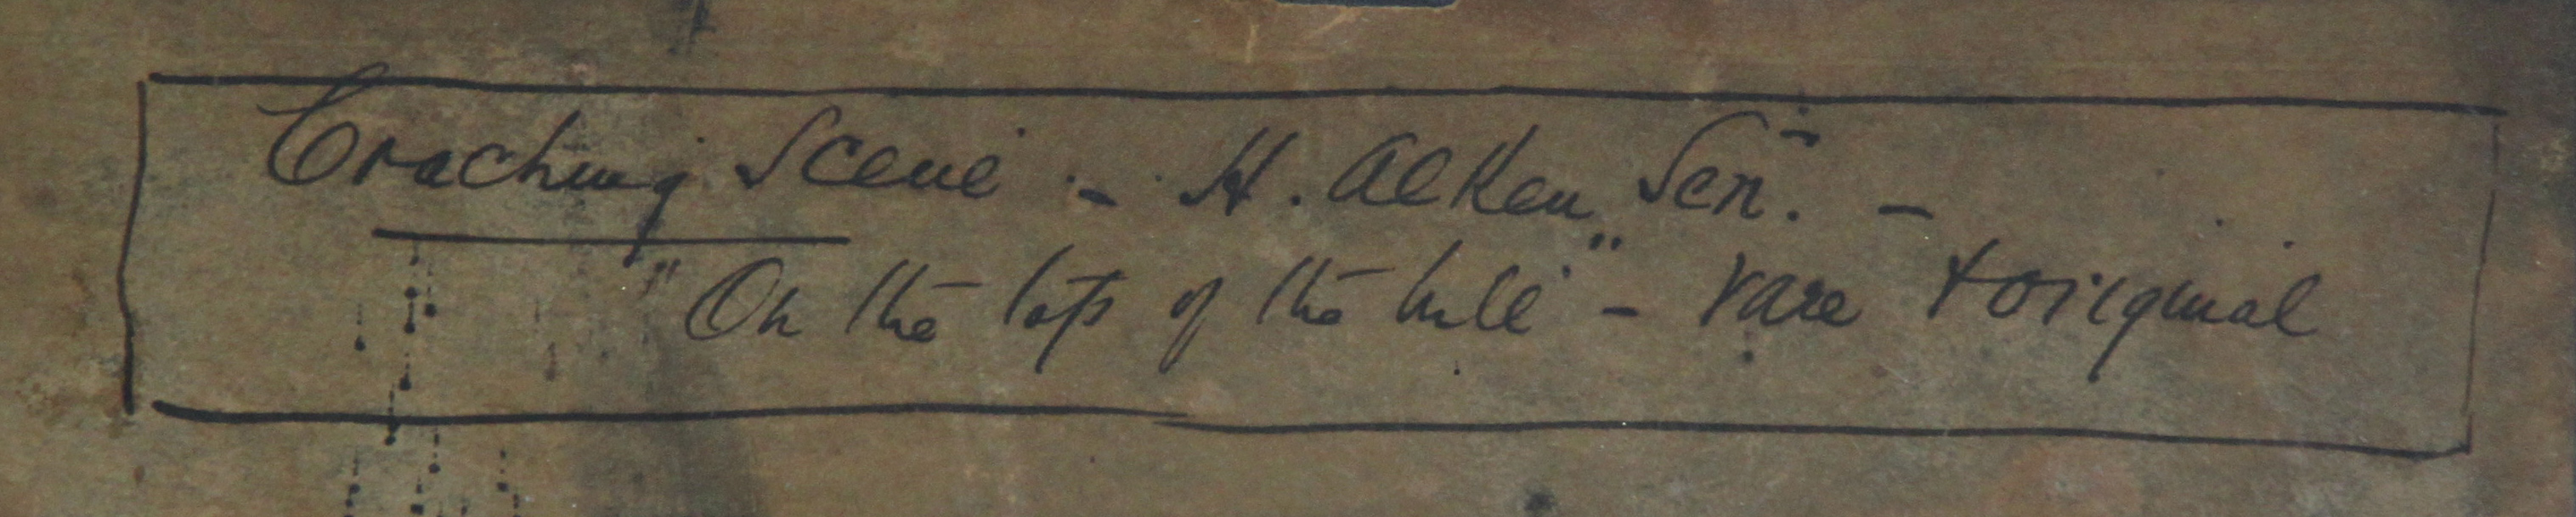 Coaching Scene - H. Alken Sen. -
"On the top of the hill" - rare + original